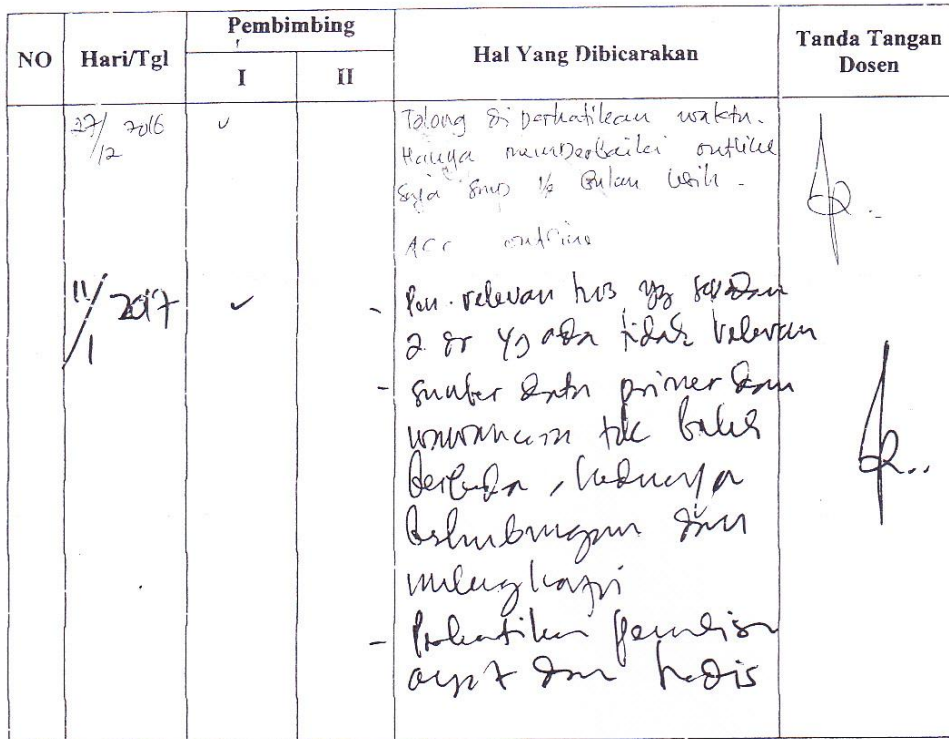 NO Hari/Tgl Pembimbing Hal Yang Dibicarakan Tanda Tangan Dosen
I II
27/12 2016 ✓ Tolong diperhatikan waktu.
Hanya memperbaiki outline
saja 1/2 bulan lebih -
ACC outline
11/1 2017 ✓ - Pen. relevan hrs yg
2 yg ada tidak relevan
- sumber data primer dan
wawancara tdk boleh
berbeda, keduanya
berhubungan dan
melengkapi
- Perhatikan penulisan
ayat dan hadis